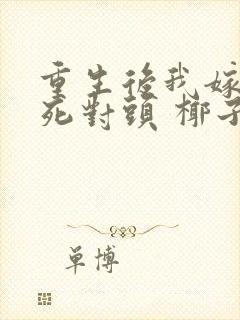 重生後我嫁
死對頭 椰子
單博